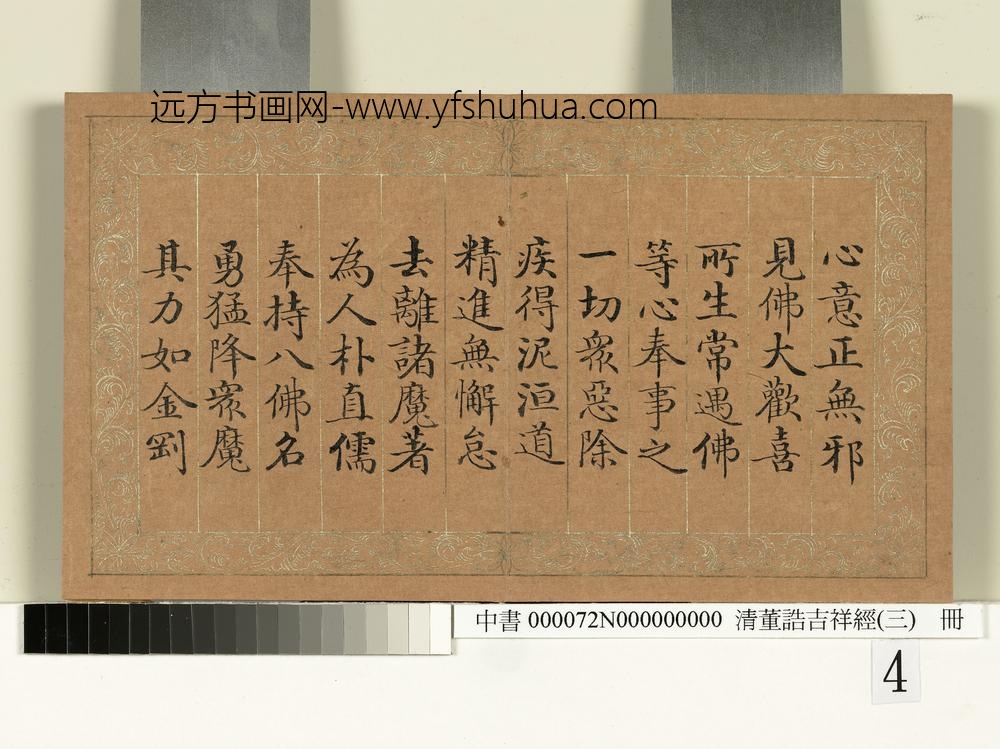 远方书画网-www.yfshuhua.com
心意正無邪
見佛大歡喜
所生常遇佛
等心奉事之
一切衆惡除
疾得泥洹道
精進無懈怠
去離諸魔著
為人朴直儒
奉持八佛名
勇猛降衆魔
其力如金剛
中書 000072N000000000 清董誥吉祥經(三) 冊
4